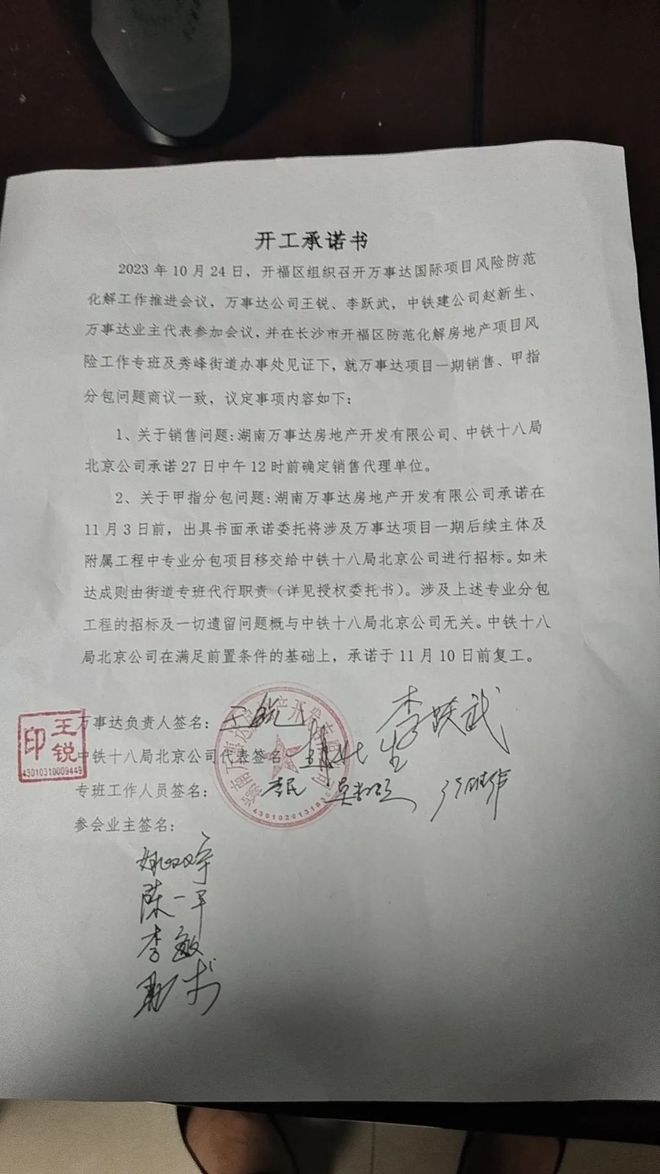 开工承诺书
2023 年 10 月 24 日，开福区组织召开万事达国际项目风险防范
化解工作推进会议，万事达公司王锐、李跃武，中铁建公司赵新生、
万事达业主代表参加会议，并在长沙市开福区防范化解房地产项目风
险工作专班及秀峰街道办事处见证下，就万事达项目一期销售、甲指
分包问题商议一致，议定事项内容如下：
1、关于销售问题：湖南万事达房地产开发有限公司、中铁十八局
北京公司承诺 27 日中午 12 时前确定销售代理单位。
2、关于甲指分包问题：湖南万事达房地产开发有限公司承诺在
11 月 3 日前，出具书面承诺委托将涉及万事达项目一期后续主体及
附属工程中专业分包项目移交给中铁十八局北京公司进行招标。如未
达成则由街道专班代行职责（详见授权委托书）。涉及上述专业分包
工程的招标及一切遗留问题概与中铁十八局北京公司无关。中铁十八
局北京公司在满足前置条件的基础上，承诺于 11 月 10 日前复工。
万事达负责人签名：王锐 李跃武
王锐
印
43010310009449
中铁十八局北京公司代表签名
专班工作人员签名：
参会业主签名：
陈一平
李敏